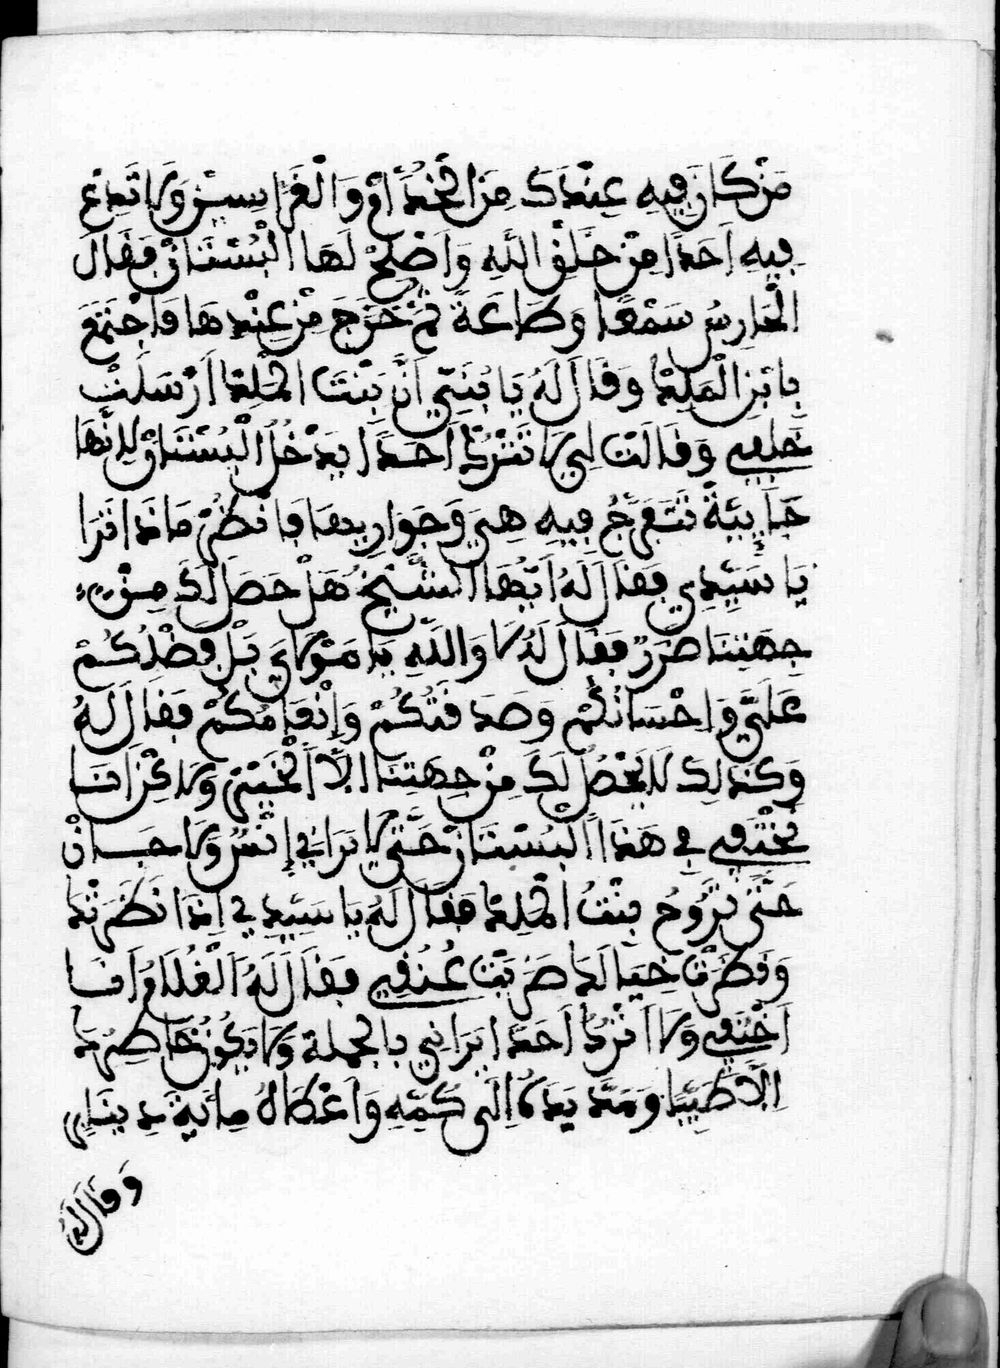 مَنْ كَانَ فِيهِ عِنْدَكَ مِنَ الْخُدَّامِ وَالْغَرَّاسِينَ وَلَا تَدَعْ
فِيهِ اَحَدًا مِنْ خَلْقِ اللَّهِ وَاَصْلِحْ لَهَا الْبُسْتَانْ فَقَالَ
الْحَارِسُ سَمْعًا وَطَاعَةً ثُمَّ خَرَجَ مِنْ عِنْدِهَا فَاجْتَمَعَ
بِابْنِ الْمَلِكْ وَقَالَ لَهُ يَا بُنَيِّ اَنَّ بِنْتَ الْمَلِكْ اَرْسَلَتْ
خَلْفِي وَقَالَتْ لِي لَا تَتْرُكْ اَحَدًا يَدْخُلُ الْبُسْتَانْ لِاِنَّهَا
جَايِئَةٌ تَتَفَرَّجُ فِيهِ هِيَ وَجَوَارِيهَا فَانْظُرْ مَاذَا تَرَا
يَا سَيِّدِي فَقَالَ لَهُ اَيُّهَا الشَّيْخُ هَلْ حَصَلَ لَكَ مِنْ
جِهَتِنَا ضَرَرٌ فَقَالَ لَهُ لَا وَاللَّهِ يَا مَوْلَايَ بَلْ فَضْلُكُمْ
عَلَيَّ وَاِحْسَانُكُمْ وَصَدَقَتُكُمْ وَاِنْعَامُكُمْ فَقَالَ لَهُ
وَكَذَلِكَ لَا يَحْصُلْ لَكَ مِنْ جِهَتِنَا اِلَّا الْخَيْرْ وَلَاكِنْ اَنَا
نَخْتَفِي فِي هَذَا الْبُسْتَانْ حَتَّى لَا يَرَانِي اِنْسٌ وَلَا جَانْ
حَتَّى تَرُوحَ بِنْتُ الْمَلِكْ فَقَالَ لَهُ يَا سَيِّدِي اِذَا نَظَرَتْكَ
وَنَظَرَتْ خَيَالَكَ ضَرَبَتْ عُنُقِي فَقَالَ لَهُ الْغُلَامُ اَنَا
اَخْتَفِي وَلَا اَتْرُكْ اَحَدًا يَرَانِي بِالْجُمْلَةِ وَلَا يَكُونُ خَاطِرُكَ
اِلَّا طَيِّبًا وَمَدَّ يَدَهُ اِلَى كُمِّهِ وَاَعْطَاهُ مِائَةَ دِينَارٍ
وَقَالَ لَهُ